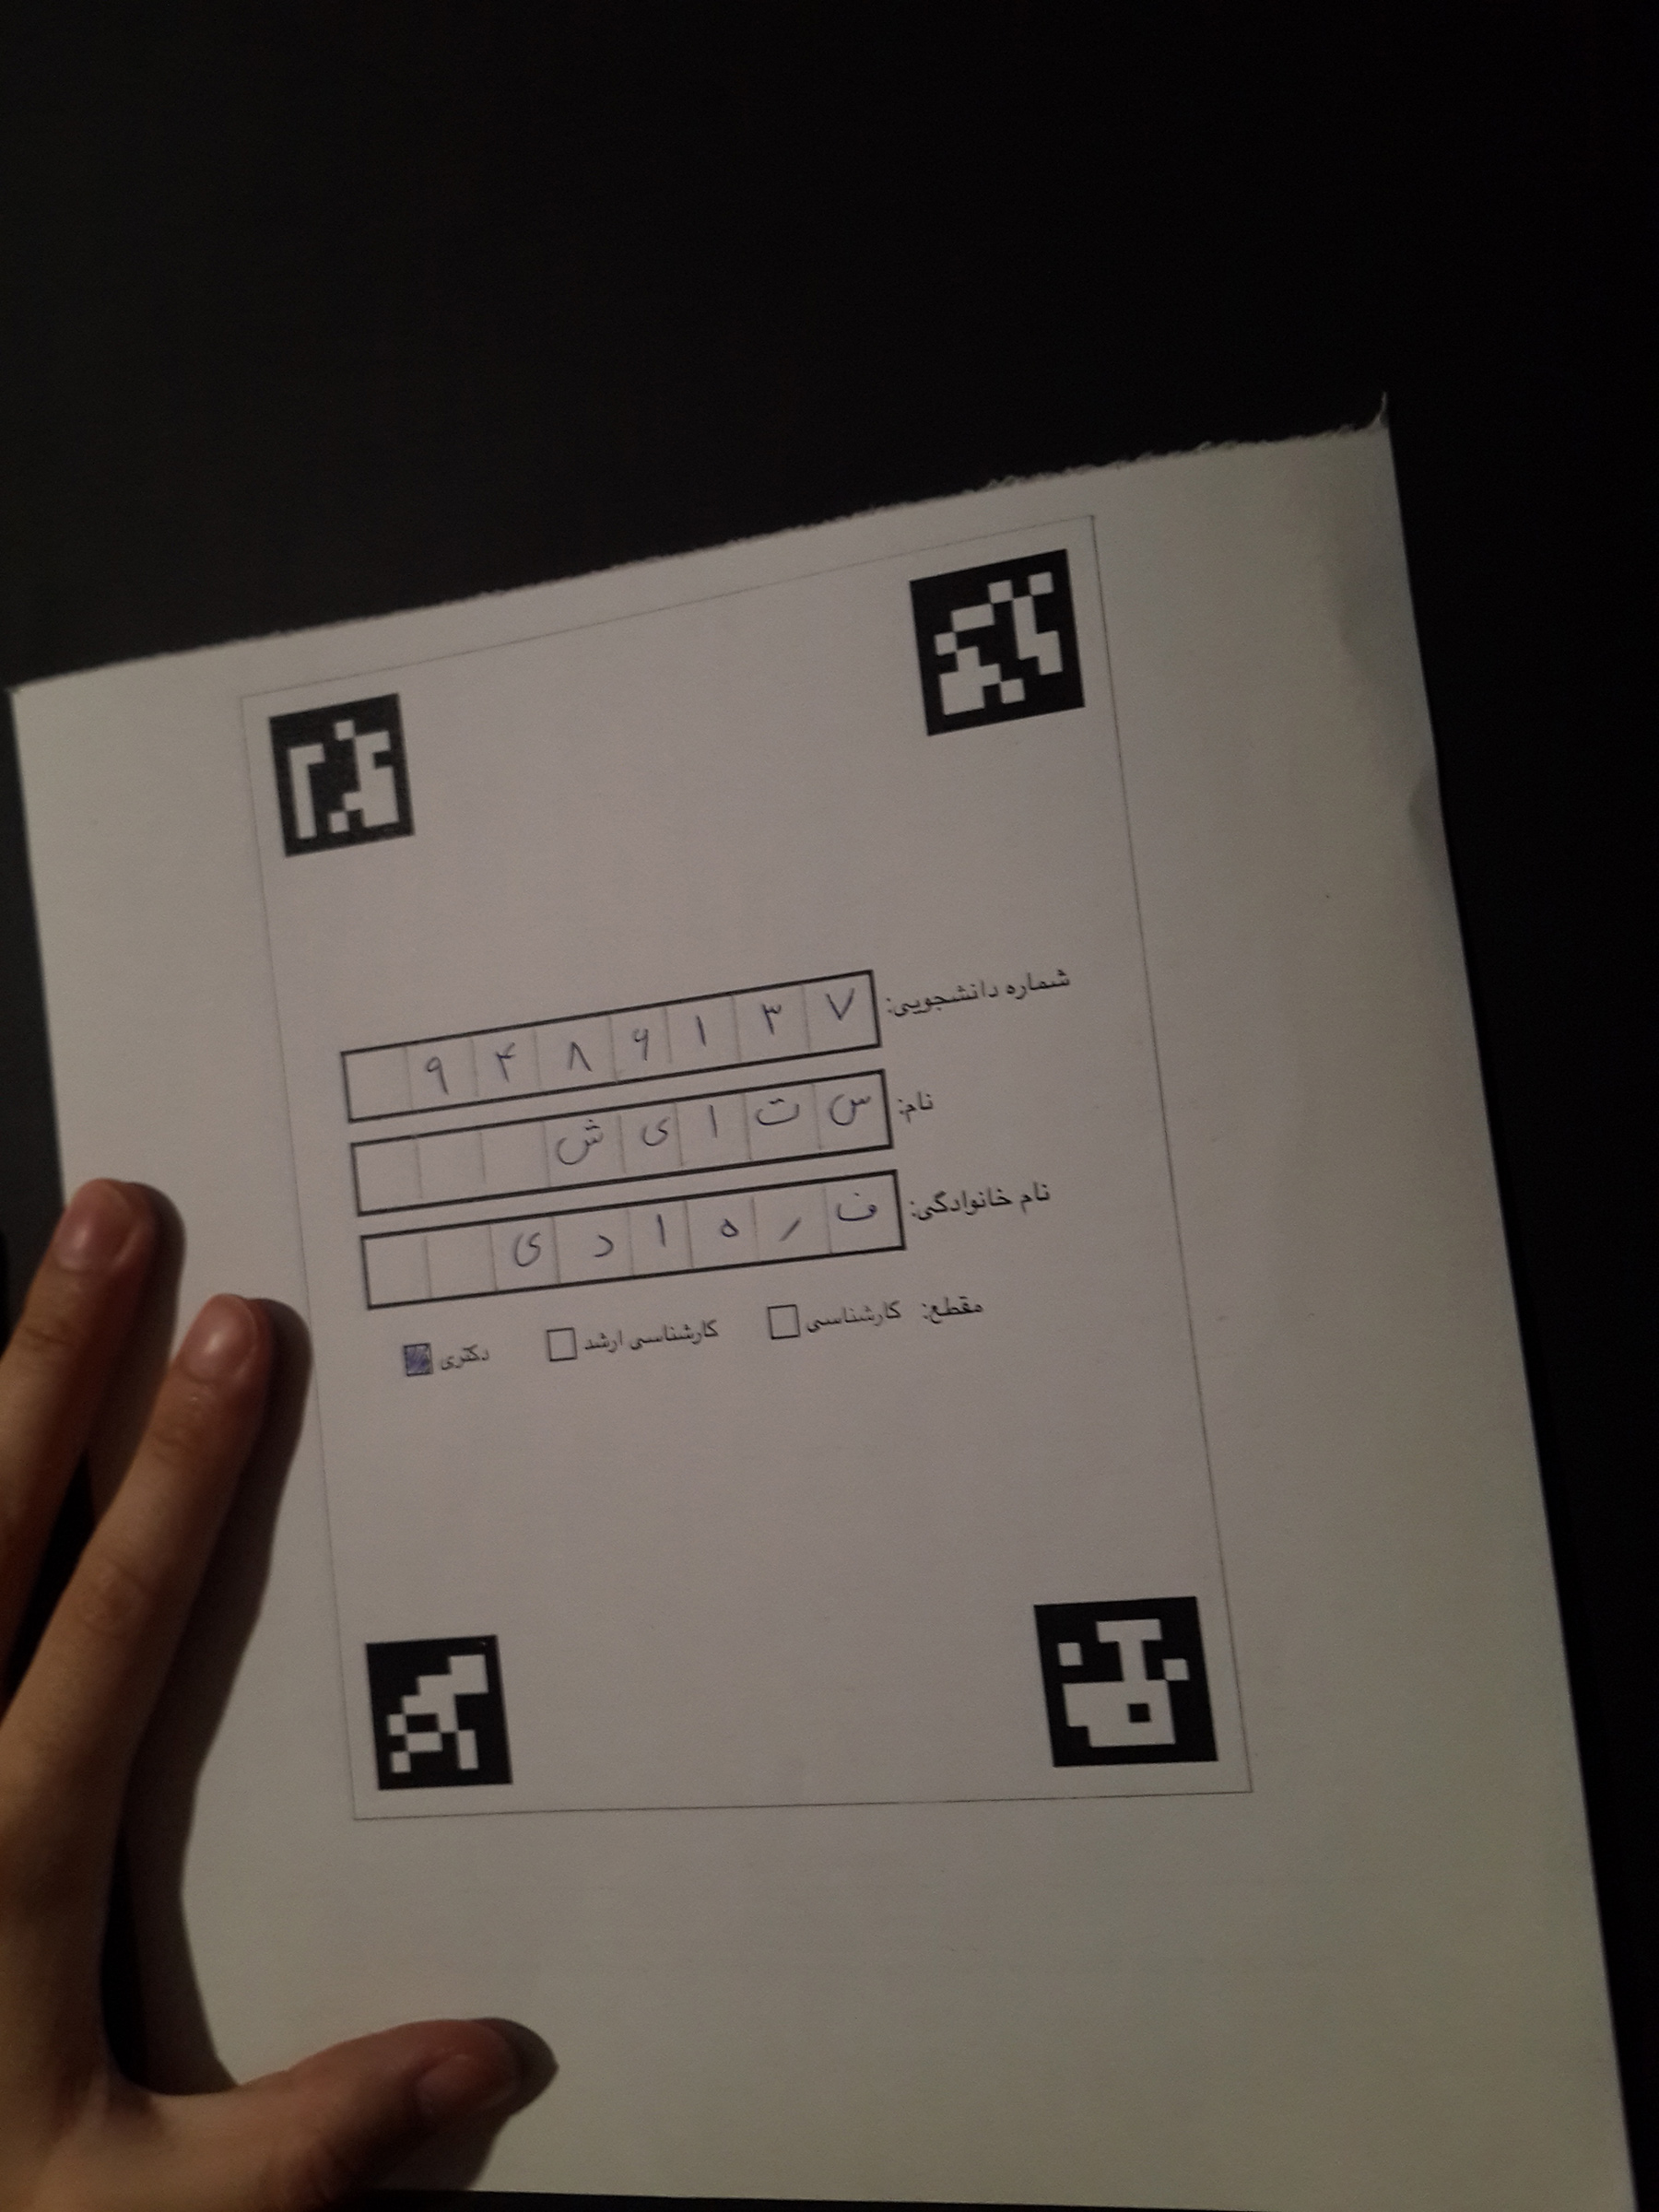 شماره دانشجویی: ۹۴۸۶۱۳۷
نام: س ت ا ی ش
نام خانوادگی: ف ر ه ا د ی
مقطع: کارشناسی کارشناسی ارشد دکتری